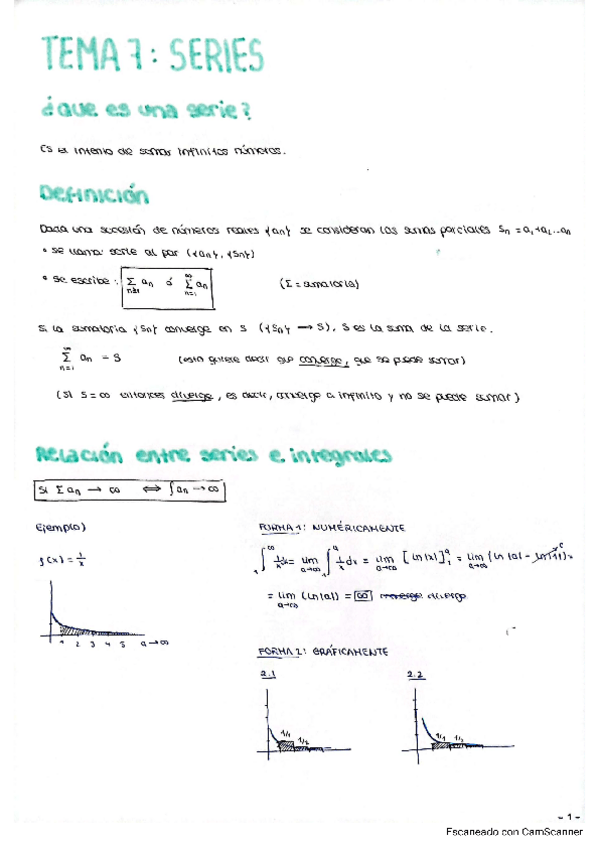 TEMA 7: SERIES
¿que es una serie?
Es el intento de sumar infinitos números.
Definición
Dada una sucesión de números reales {an} se consideran las sumas parciales Sn = a1+a2...an
• se llama serie al par ({an}, {Sn})
• se escribe: Σ n≥1 an ó ∞ Σ n=1 an (Σ = sumatoria)
Si la sumatoria {Sn} converge en S ({Sn} → S), S es la suma de la serie.
∞ Σ n=1 an = S (esto quiere decir que converge, que se puede sumar)
(Si S = ∞ entonces diverge, es decir, converge a infinito y no se puede sumar)
Relación entre series e integrales
Si Σ an → ∞ ⟺ ∫ an → ∞
Ejemplo)
f(x) = 1/x
1 2 3 4 5 a→∞
FORMA 1: NUMÉRICAMENTE
∫₁^∞ 1/x dx = lim a→∞ ∫₁^a 1/x dx = lim a→∞ [ln|x|]₁^a = lim a→∞ (ln|a| - ln|1|) =
= lim a→∞ (ln|a|) = ∞ converge diverge
FORMA 2: GRÁFICAMENTE
2.1 2.2
1/1 1/2
1/1 1/2
- 1 -
Escaneado con CamScanner